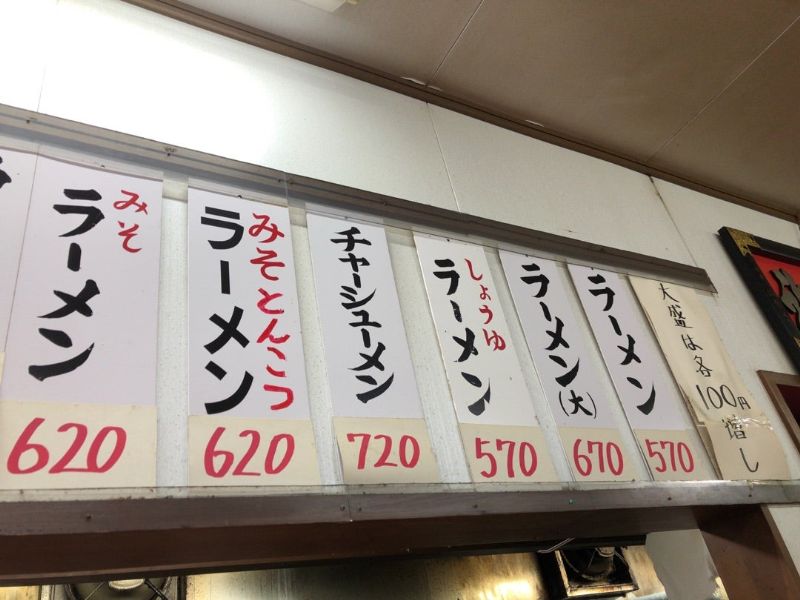 大盛は各
100円
増し
ラーメン
570
ラーメン(大)
670
しょうゆ
ラーメン
570
チャーシューメン
720
みそとんこつ
ラーメン
620
みそ
ラーメン
620